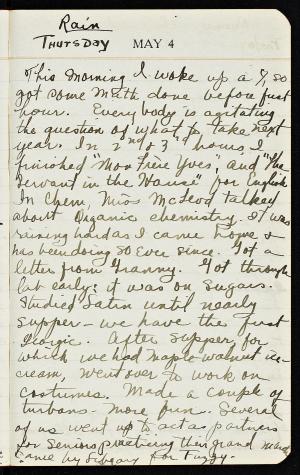 Rain
Thursday MAY 4
This morning I woke up a 7, so
got some Math done before first
hour. Everybody is agitating
the question of what to take next
year. In 2nd & 3rd hours I
finished "Mon Frère Yves", and "The
Servant in the House" for English
In Chem, Miss McLeod talked
about Organic chemistry. It was
raining hard as I came home &
has been doing so ever since. Got a
letter from Granny. Got through
Lab early; it was on sugars.
Studied Latin until nearly
supper - we have the first
Georgic. After supper, for
which we had maple-walnut ice-
cream, went over to work on
costumes. Made a couple of
turbans. More fun. Several
of us went up to act as partners
for Seniors practicing their grand march
Came by library for